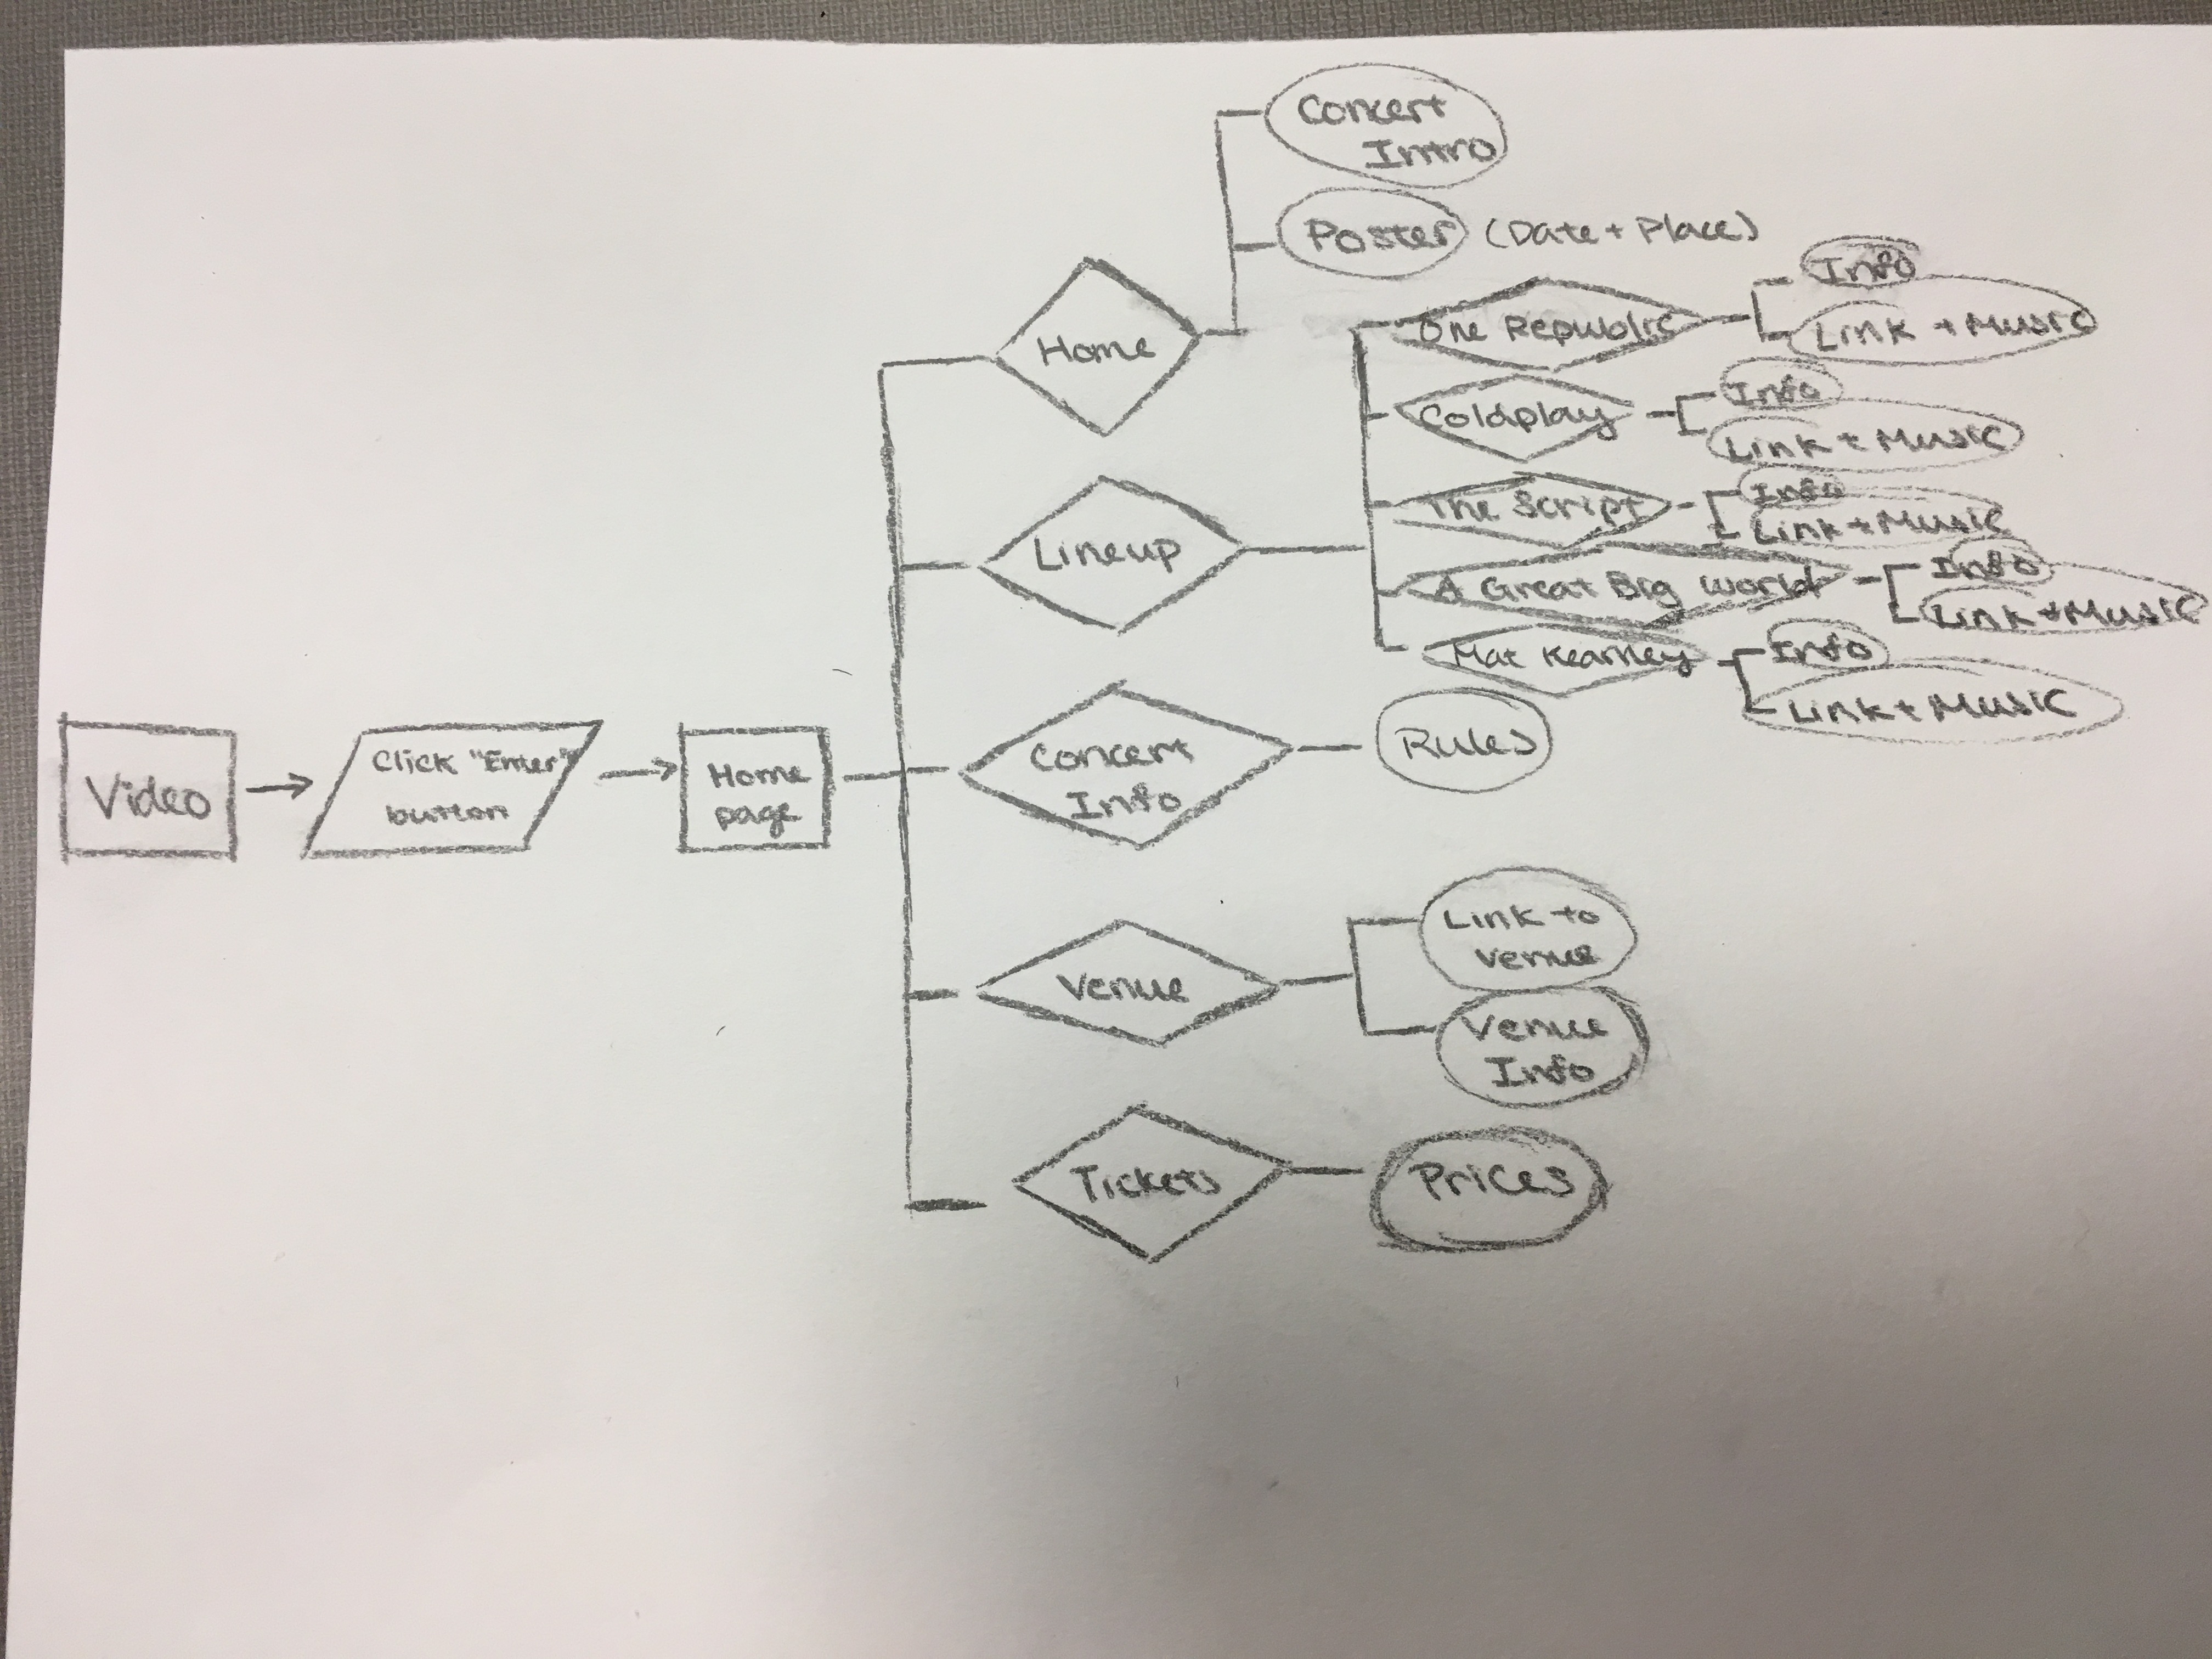 Video
Click "Enter"
button
Home
page
Home
Concert
Intro
Poster (Date + Place)
Lineup
One Republic
Info
Link + Music
Coldplay
Info
Link + Music
The Script
Info
Link + Music
A Great Big World
Info
Link + Music
Mat Kearney
Info
Link + Music
Concert
Info
Rules
Venue
Link to
venue
Venue
Info
Tickets
Prices